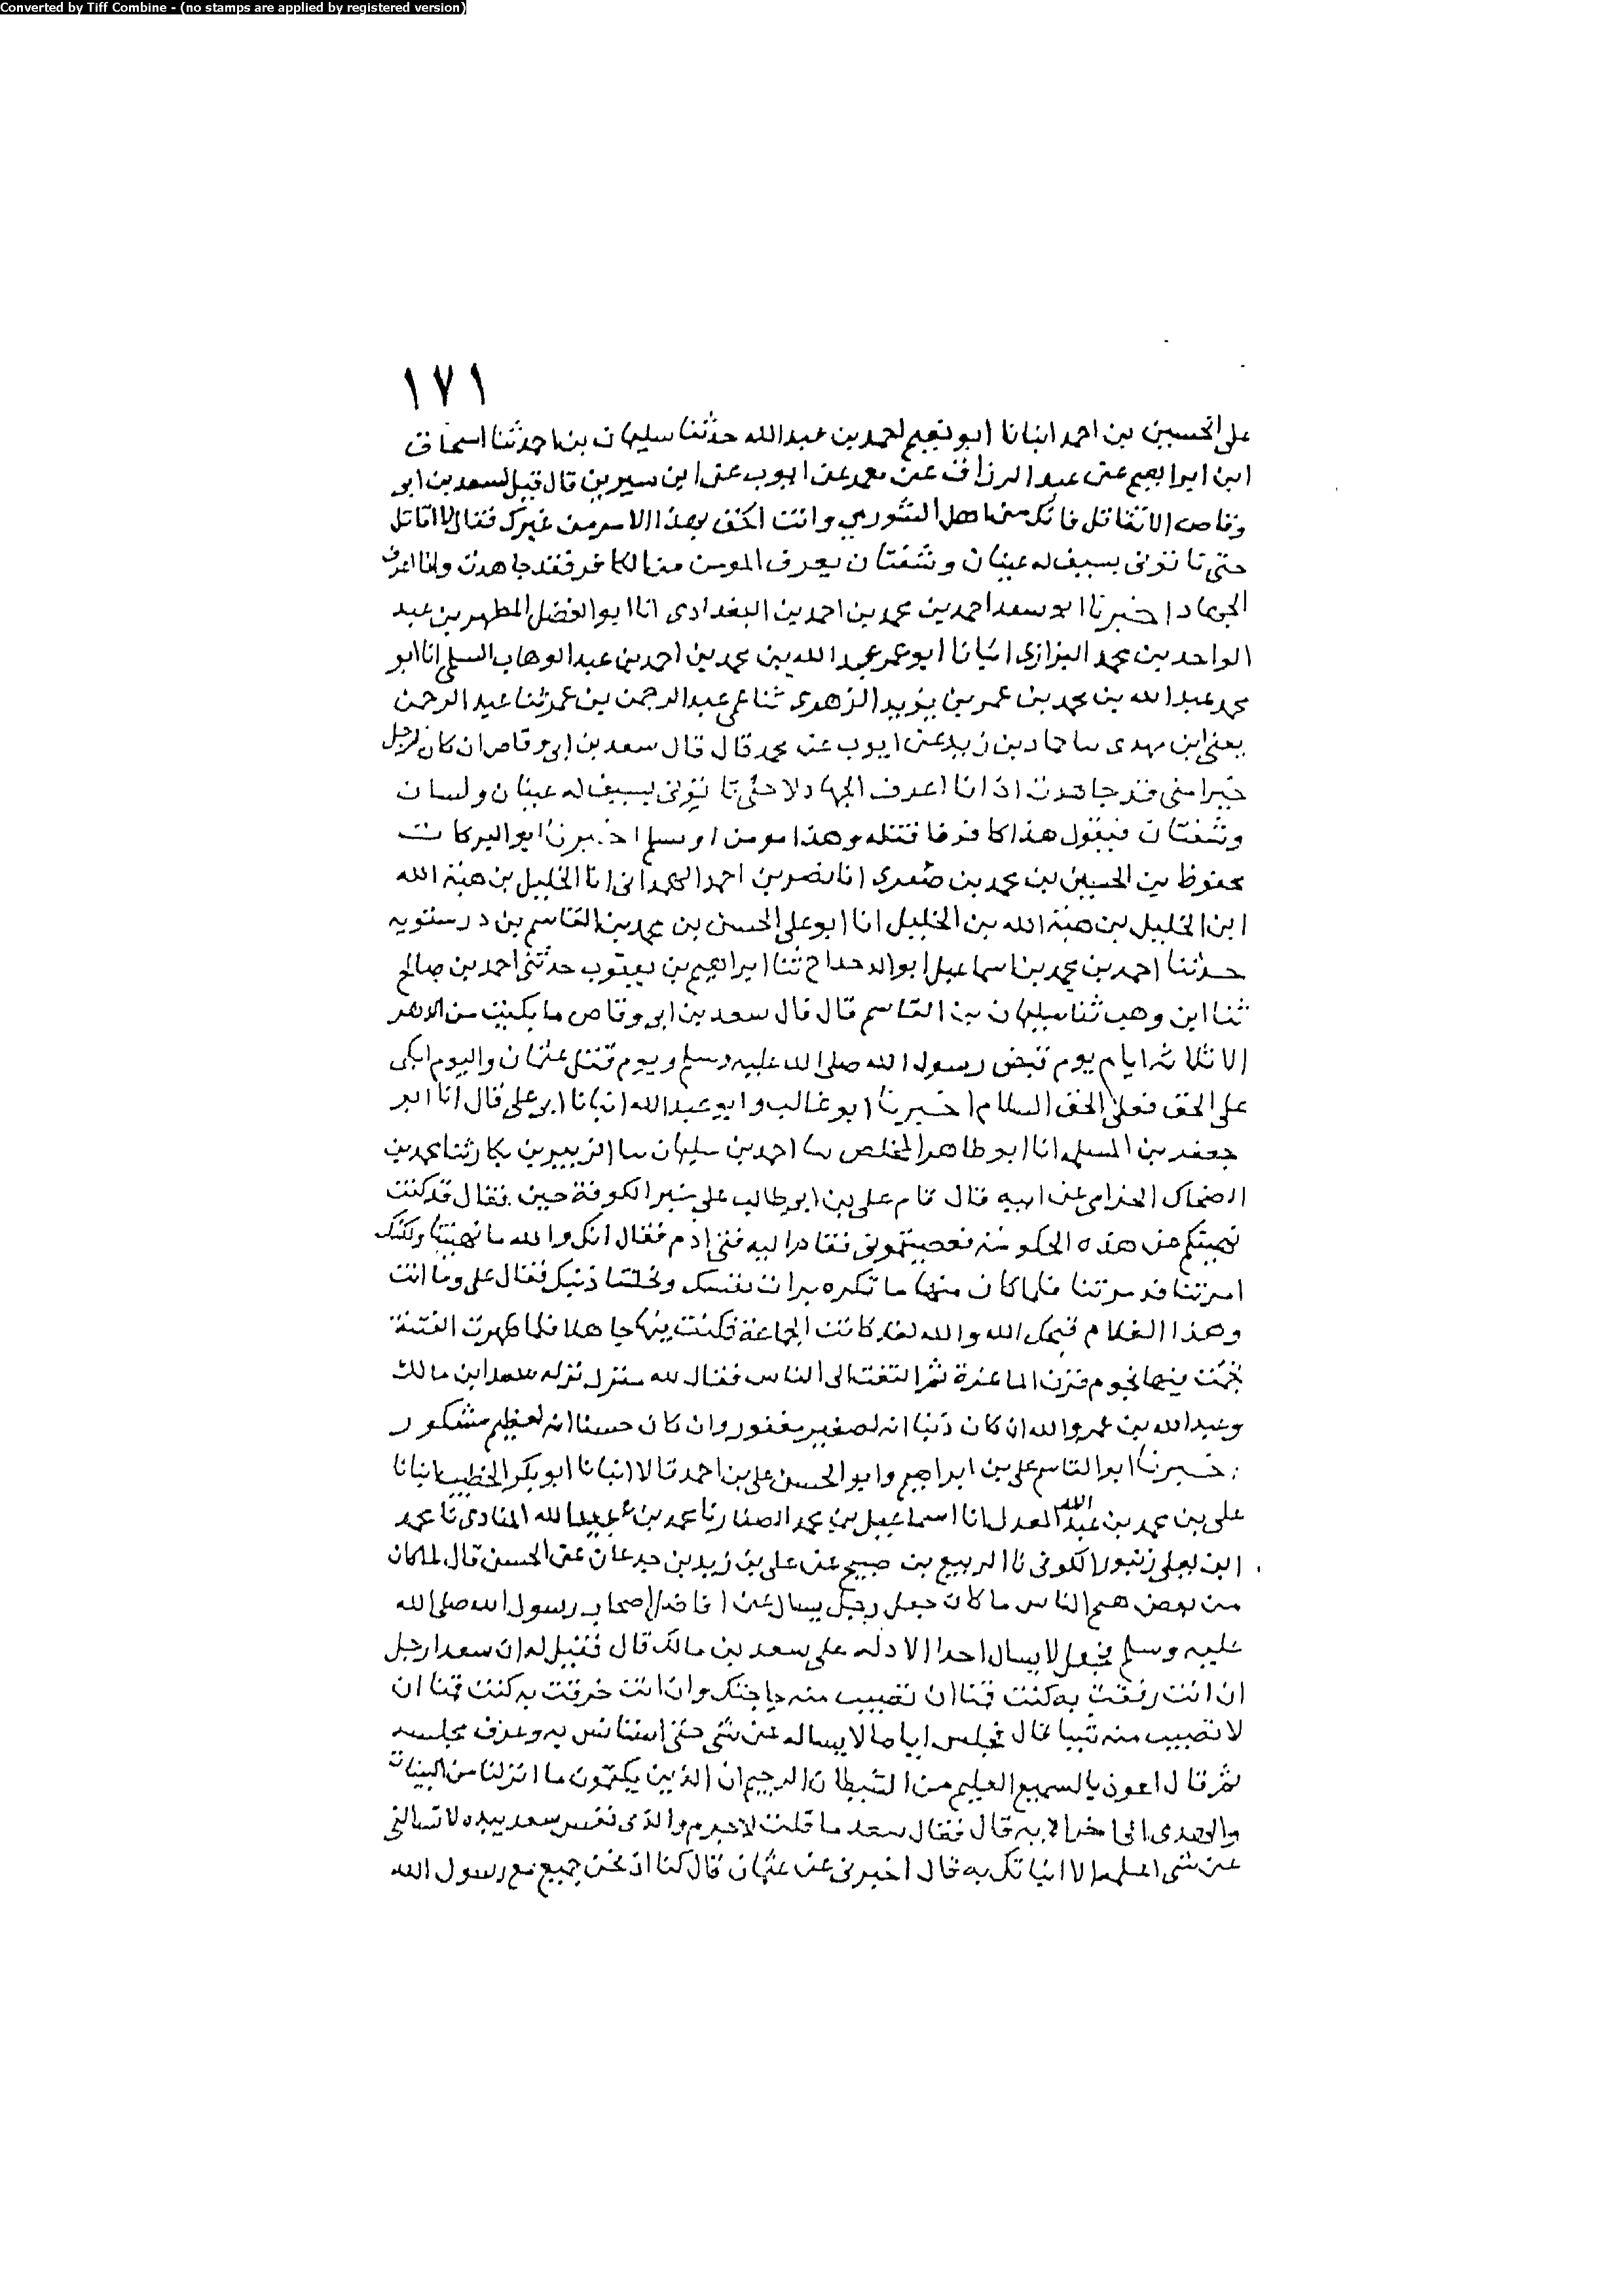 Converted by Tiff Combine - (no stamps are applied by registered version)
١٧١
على الحسين بن احمد انبانا ابو نعيم احمد بن عبد الله حدثنا سليمان بن احمد ثنا اسحاق
ابن ابراهيم عن عبد الرزاق عن معمر عن ايوب عن ابن سيرين قال قيل لسعد بن ابى
وقاص الا تقاتل فانك من اهل الشورى وانت احق بهذا الامر من غيرك فقال لا اقاتل
حتى تا توني بسيف له عينان وشفتان يعرف المومن من الكافر فقد جاهدت وانا اعرف
الجهاد اخبرنا ابو سعد احمد بن محمد بن احمد بن البغدادى انا ابو الفضل المطهر بن عبد
الواحد بن محمد البزازى انبانا ابو عمر عبد الله بن محمد بن احمد بن عبد الوهاب السلمى انا ابو
محمد عبد الله بن محمد بن عمر بن يزيد الزهرى ثنا عمى عبد الرحمن بن عمر ثنا عبد الرحمن
يعنى ابن مهدى سا حماد بن زيد عن ايوب عن محمد قال قال سعد بن ابى وقاص ان كان لرجل
خيرا منى قد جاهدت اذ انا اعرف الجهاد لا حتى تا تونى بسيف له عينان ولسان
وشفتان فيقول هذا كافر فاقتله وهذا مومن او مسلم اخبرنا ابو البركات
محفوظ بن الحسين بن محمد بن صصرى انا نصر بن احمد الهمدانى انا الخليل بن هبة الله
ابن الخليل بن هبة الله بن الخليل انا ابو على الحسن بن محمد بن القاسم بن درستويه
حدثنا احمد بن محمد بن اسماعيل ابو الدحداح ثنا ابراهيم بن يعقوب حدثنى احمد بن صالح
ثنا ابن وهب ثنا سليمان بن القاسم قال قال سعد بن ابى وقاص ما بكيت من الدهر
الا ثلاثة ايام يوم قبض رسول الله صلى الله عليه وسلم ويوم قتل عثمان واليوم ابكى
على الحق فعلى الحق السلام اخبرنا ابو غالب وابو عبد الله انبانا ابو على قال انا ابو
جعفر بن المسلمه انا ابو طاهر المخلص سا احمد بن سليمان سا الزبير بن بكار ثنا محمد بن
الضحاك الحزامى عن ابيه قال قام على بن ابى طالب على منبر الكوفة حين فقال قد كنت
نهيتكم عن هذه الحكومة فعصيتمونى فقام اليه فتى ادم فقال انك والله ما نهيتنا ولكنك
امرتنا قد مرتنا فلما كان منها ما تكره برات نفسك ونحلتنا ذنبك فقال على وما انت
وهذا الكلام قبحك الله والله لقد كانت الجماعة فكنت فيها خاملا فلما ظهرت الفتنة
نجمت فيها نجوم قرن الماعزة ثم التفت الى الناس فقال لله منزل نزله سعد ابن مالك
وعبد الله بن عمر والله ان كان ذنبا انه لصغير مغفور وان كان حسنا انه لعظيم مشكور
اخبرنا ابو القاسم على بن ابراهيم وابو الحسن على بن احمد قالا انبانا ابو بكر الخطيب انبانا
على بن محمد بن عبد الله المعدل انا اسماعيل بن محمد الصفار نا محمد بن عبيد الله المنادى نا محمد
ابن يعلى زنبور الكوفى نا الربيع بن صبيح عن على بن زيد بن جدعان عن الحسن قال لما كان
من بعض هيج الناس ما كان جعل رجل يسال عن افاضل اصحاب رسول الله صلى الله
عليه وسلم فجعل لا يسال احدا الا دله على سعد بن مالك قال فقيل له ان سعدا رجل
ان انت رفقت به كنت قمنا ان تصيب منه حاجتك وان انت خرقت به كنت قمنا ان
لا تصيب منه شيا قال فجلس اياما لا يساله عن شى حتى استانس به وعرف مجلسه
ثم قال اعوذ بالسميع العليم من الشيطان الرجيم ان الذين يكتمون ما انزلنا من البينات
والهدى الى اخر الايه قال فقال سعد ما قلت لا جرم والذى نفس سعد بيده لا تسالنى
عن شى اعلمه الا انباتك به قال اخبرنى عن عثمان قال كنا اذ نحن جميع مع رسول الله